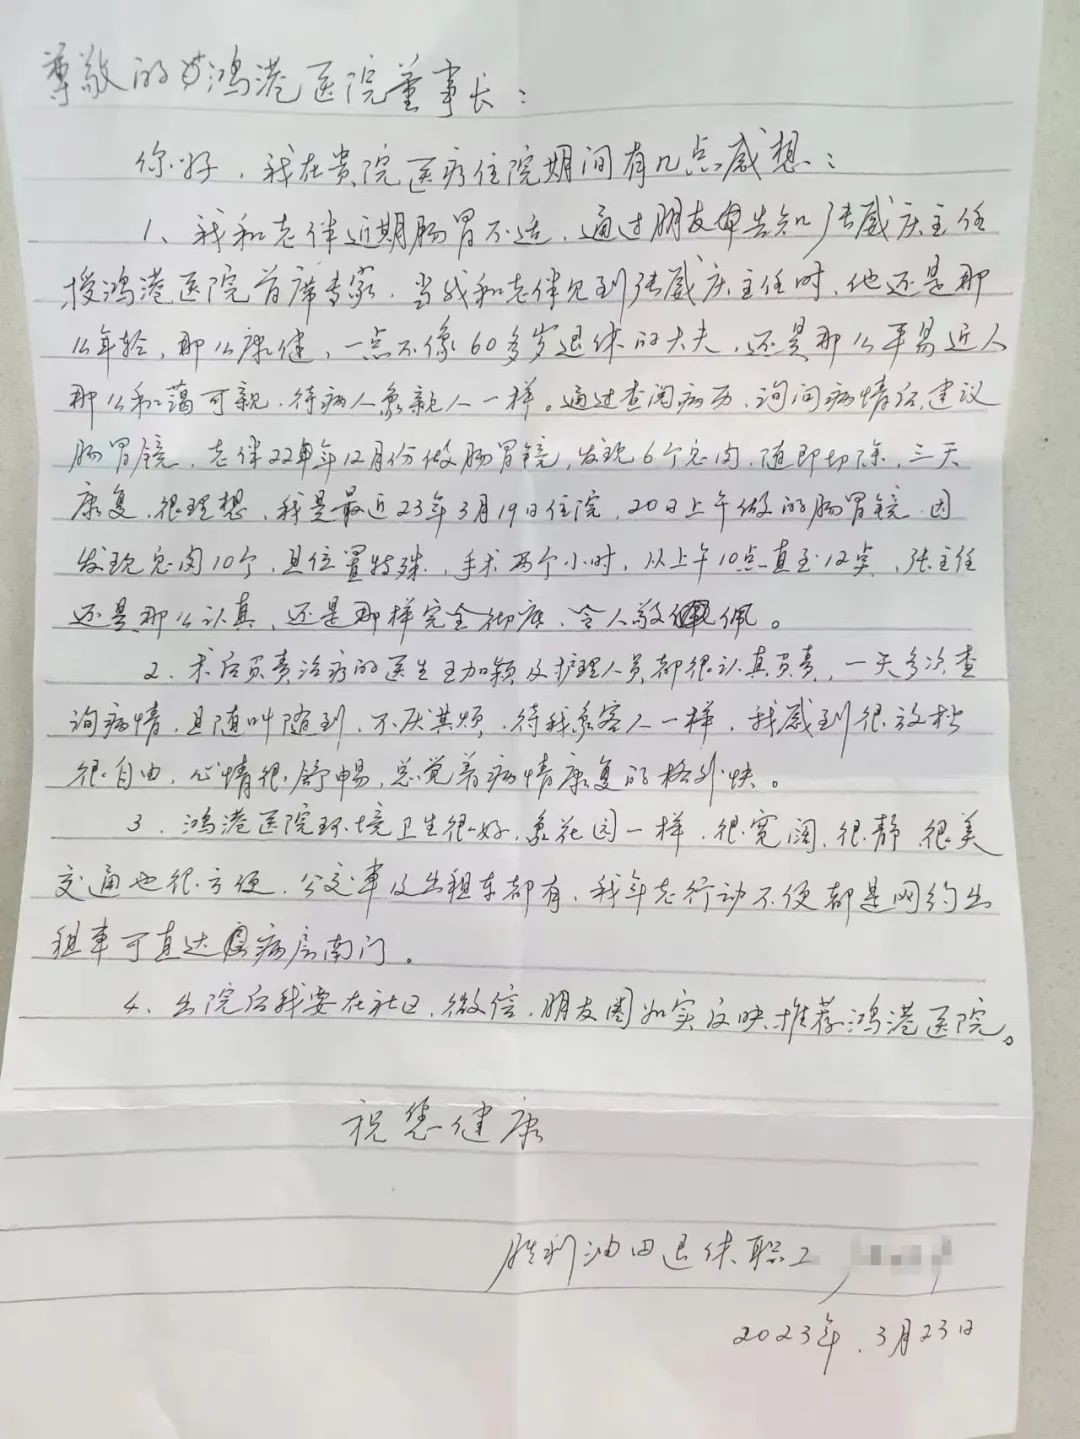 尊敬的鸿港医院董事长：
你好，我在贵院医疗住院期间有几点感想：
1、我和老伴近期肠胃不适，通过朋友告知张威庆主任
授鸿港医院首席专家，当我和老伴见到张威庆主任时，他还是那
么年轻，那么康健，一点不像60多岁退休的大夫，还是那么平易近人
那么和蔼可亲，待病人象亲人一样。通过查阅病历、询问病情后，建议
肠胃镜，老伴22年12月份做肠胃镜，发现6个息肉，随即切除，三天
康复，很理想，我是最近23年3月19日住院，20日上午做的肠胃镜，因
发现息肉10个，且位置特殊，手术两个小时，从上午10点直至12点，张主任
还是那么认真，还是那样完全彻底，令人敬佩。
2、术后负责治疗的医生王加颖及护理人员都很认真负责，一天多次查
询病情，且随叫随到，不厌其烦，待我象客人一样，我感到很放松
很自由，心情很舒畅，总觉着病情康复的格外快。
3、鸿港医院环境卫生很好，象花园一样，很宽阔，很静，很美
交通也很方便，公交车及出租车都有，我年老行动不便都是网约出
租车可直达病房南门。
4、出院后我要在社区、微信、朋友圈如实反映推荐鸿港医院。
祝您健康
胜利油田退休职工
2023年.3月23日